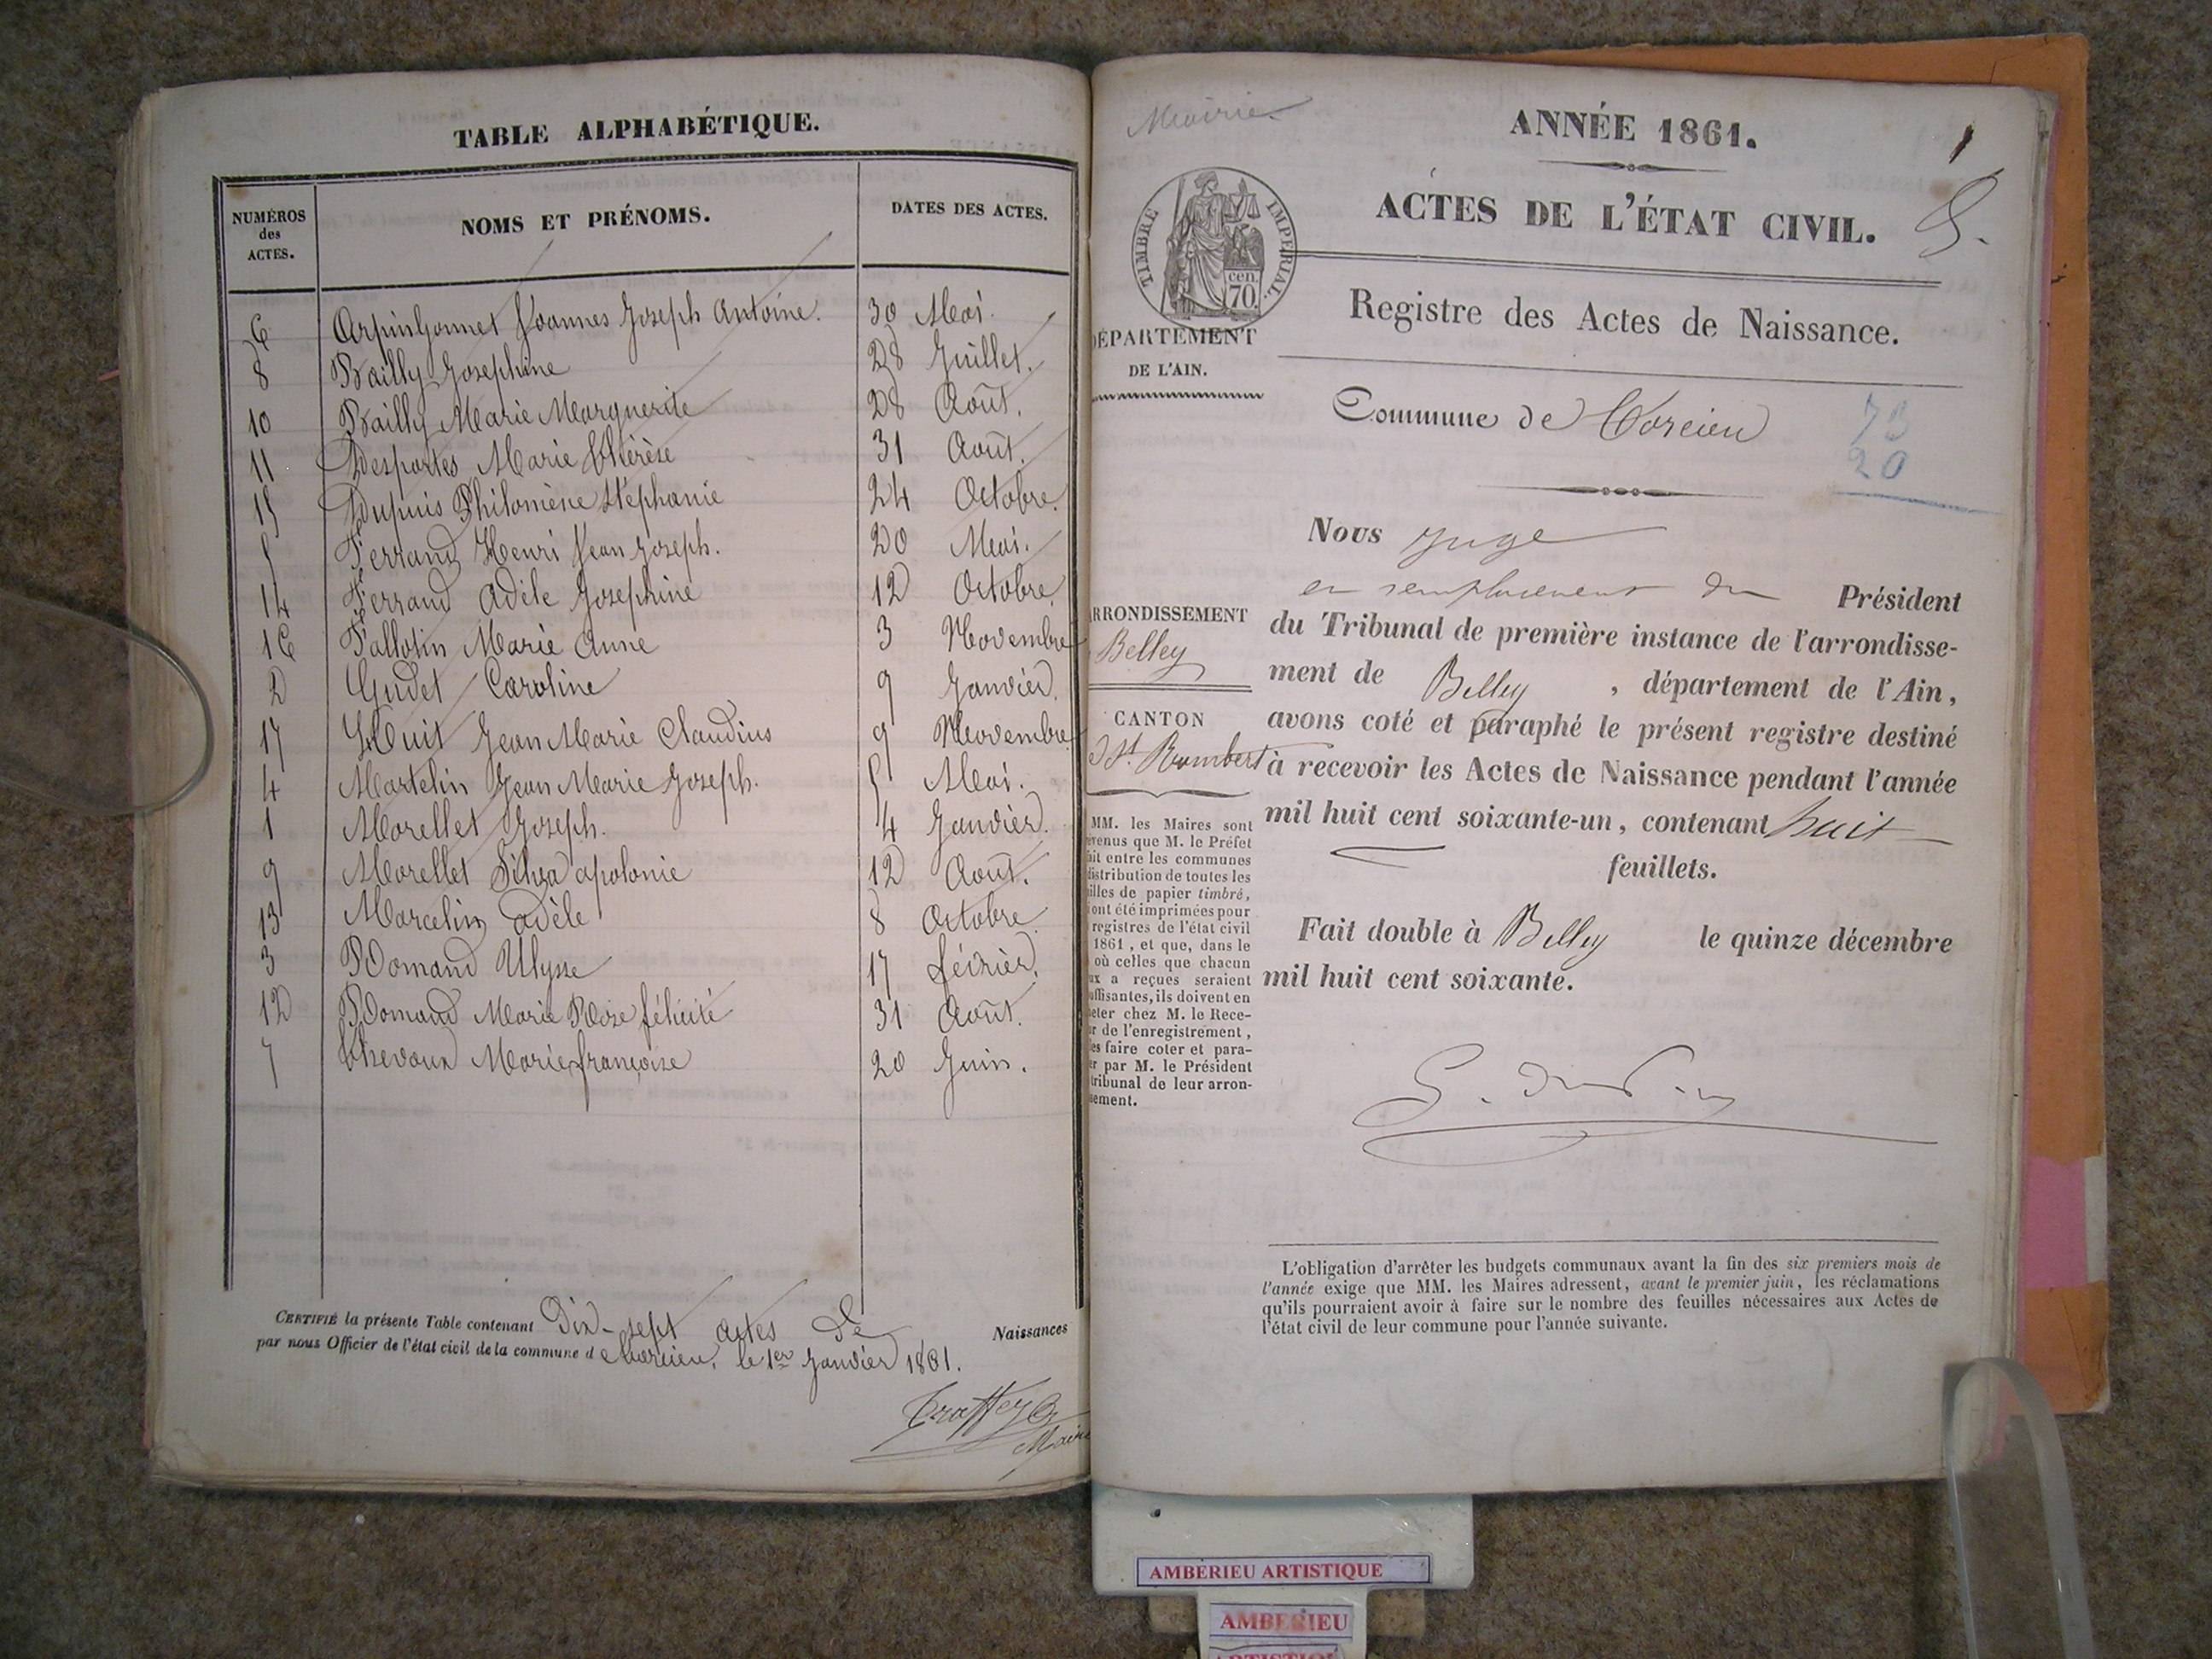 TABLE ALPHABÉTIQUE.
NUMÉROS des ACTES.
NOMS ET PRÉNOMS.
DATES DES ACTES.
6 Arpin Gonnet Joannes Joseph Antoine. 30 Mai.
8 Bailly Josephine 28 Juillet.
10 Bailly Marie Marguerite 28 Août.
11 Desportes Marie Thérèse 31 Août.
15 Dupuis Philomène Stéphanie 24 Octobre.
5 Ferrand Henri Jean Joseph. 20 Mai.
14 Ferrand Adèle Josephine 12 Octobre.
16 Fallotin Marie Anne 3 Novembre
2 Gudet Caroline 9 Janvier.
17 Huit Jean Marie Claudius 9 Novembre
4 Martelin Jean Marie Joseph. 5 Mai.
1 Morellet Joseph. 4 Janvier.
9 Morellet apolonie 12 Août.
13 Marcelin adèle 8 Octobre.
3 Romand Ulysse 17 février.
12 Romand Marie Rose félicité 31 Août.
7 Thevoux Marie françoise 20 Juin.
CERTIFIÉ la présente Table contenant Dix-sept actes de Naissances
par nous Officier de l'état civil de la commune d le 1er Janvier 1861.
Maire
Mairie
TIMBRE IMPÉRIAL.
cen.
70.
ANNÉE 1861.
1
ACTES DE L'ÉTAT CIVIL.
Registre des Actes de Naissance.
DÉPARTEMENT
DE L'AIN.
Commune de Torcieu
73
20
Nous Juge
en remplacement du Président
du Tribunal de première instance de l'arrondisse-
ment de Belley, département de l'Ain,
avons coté et paraphé le présent registre destiné
à recevoir les Actes de Naissance pendant l'année
mil huit cent soixante-un, contenant huit
feuillets.
Fait double à Belley le quinze décembre
mil huit cent soixante.
RRONDISSEMENT
Belley
CANTON
St. Rambert
MM. les Maires sont
evenus que M. le Préfet
ait entre les communes
distribution de toutes les
illes de papier timbré,
ont été imprimées pour
registres de l'état civil
1861, et que, dans le
où celles que chacun
ux a reçues seraient
uffisantes, ils doivent en
eter chez M. le Rece-
r de l'enregistrement,
es faire coter et para-
er par M. le Président
tribunal de leur arron-
sement.
L'obligation d'arrêter les budgets communaux avant la fin des six premiers mois de
l'année exige que MM. les Maires adressent, avant le premier juin, les réclamations
qu'ils pourraient avoir à faire sur le nombre des feuilles nécessaires aux Actes de
l'état civil de leur commune pour l'année suivante.
AMBERIEU ARTISTIQUE
AMBERIEU
ARTISTIQUE